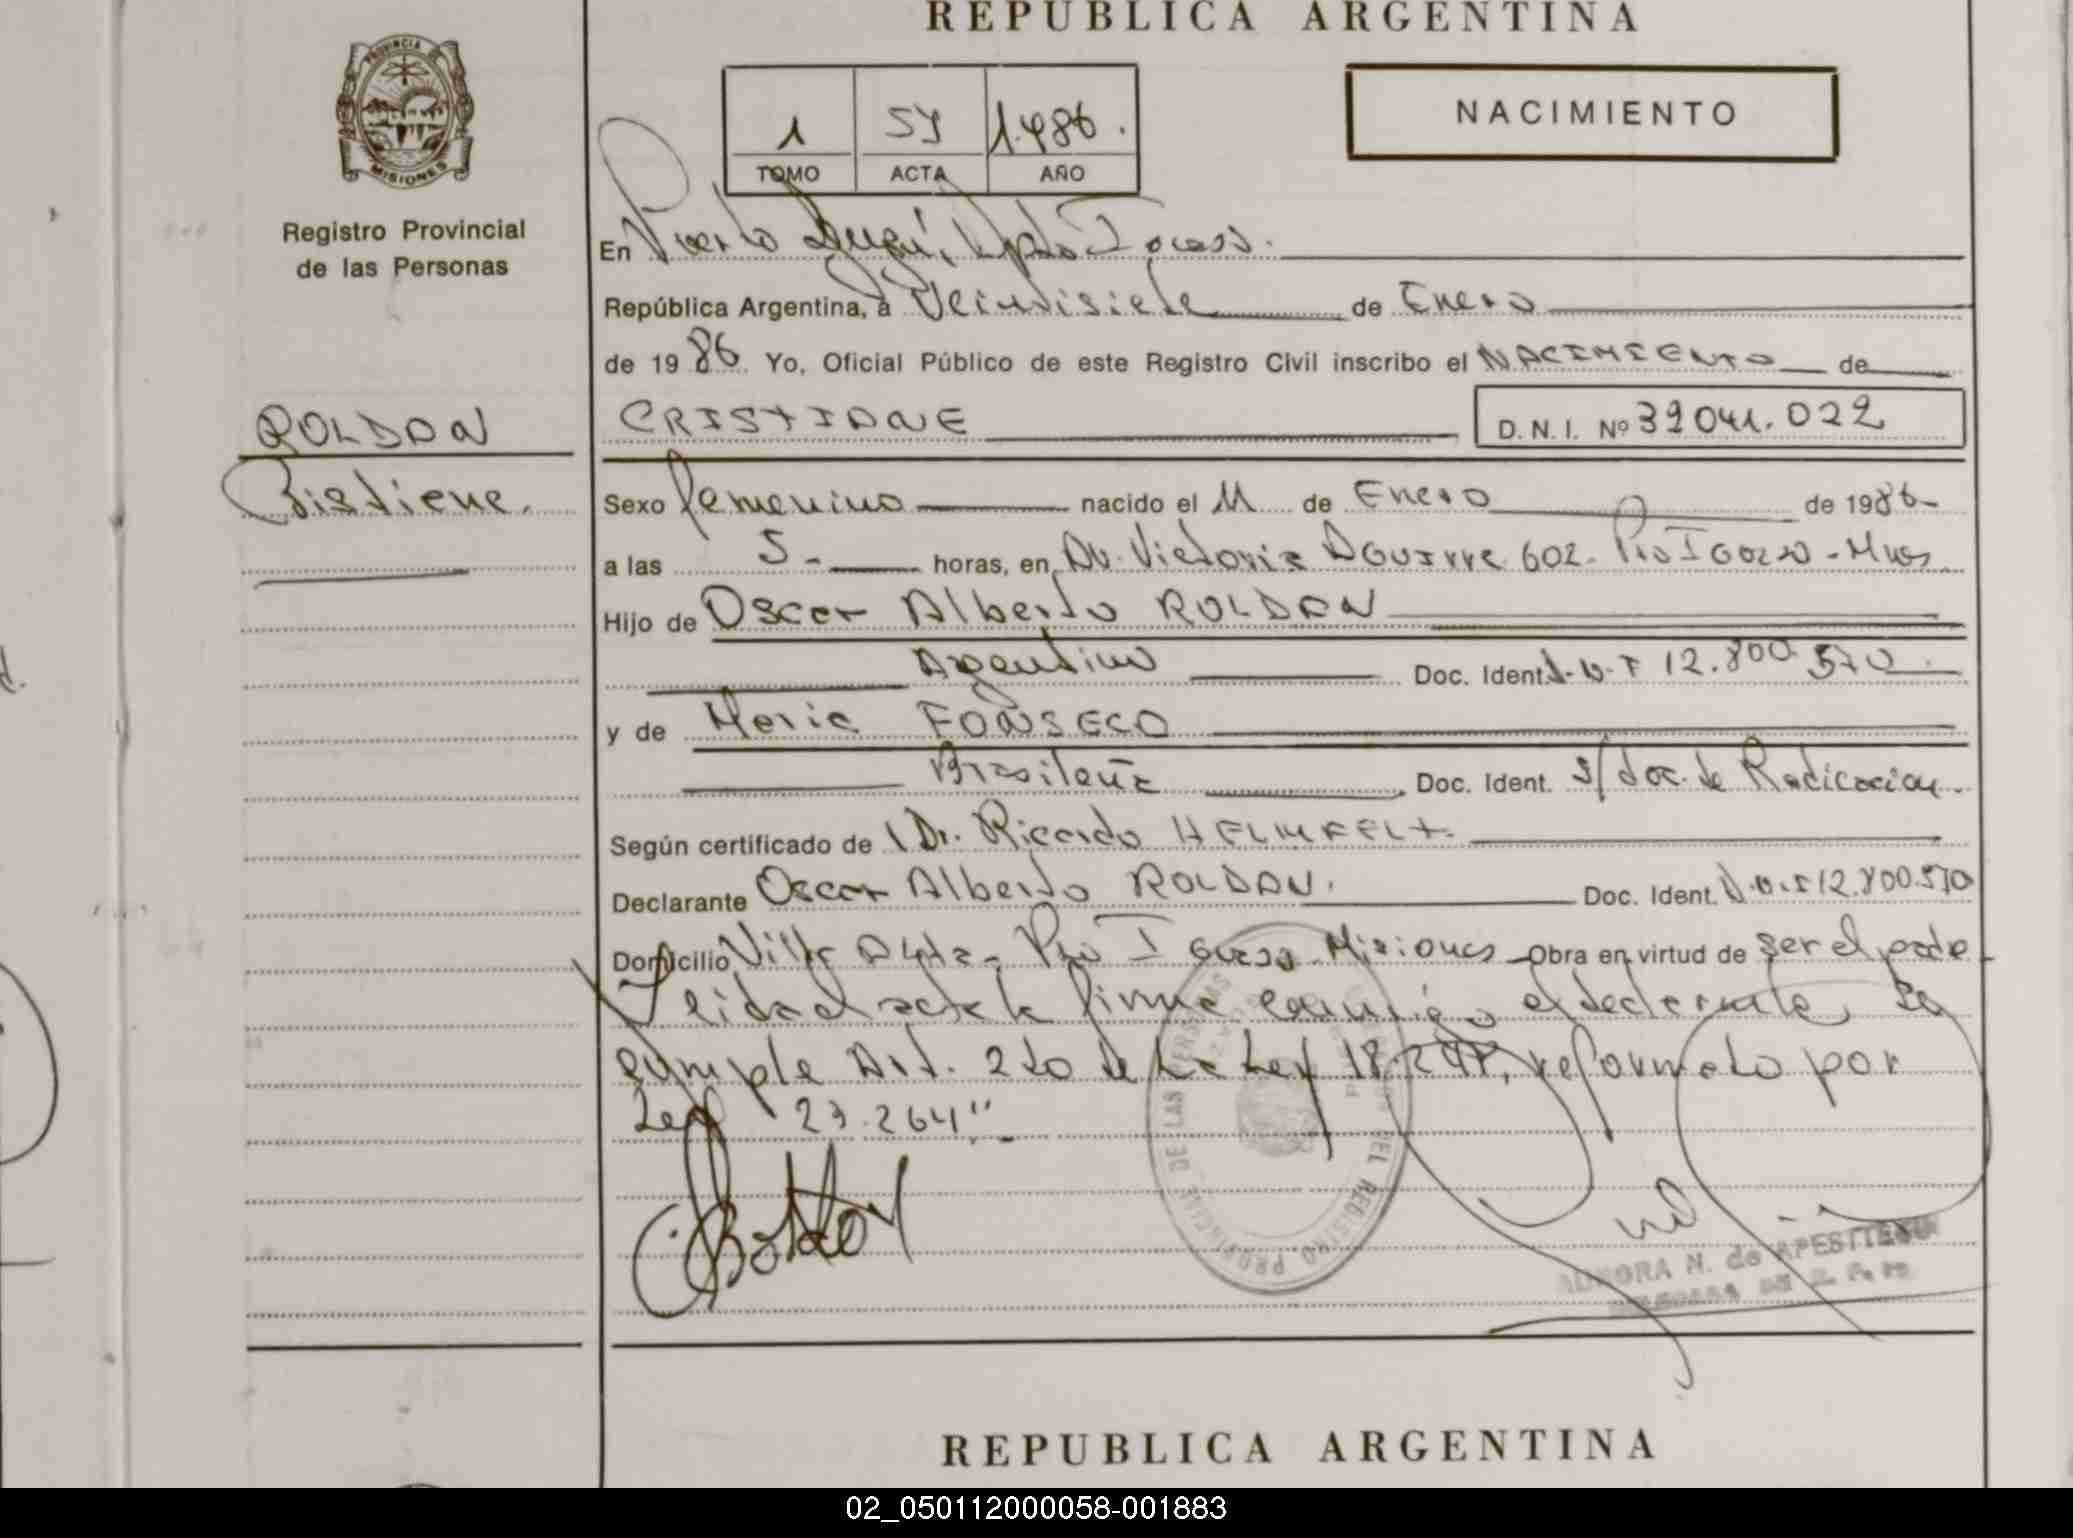 REPUBLICA ARGENTINA
PROVINCIA DE
MISIONES
Registro Provincial
de las Personas
1 57 1.986.
TOMO ACTA AÑO
NACIMIENTO
En Puerto Iguazú, Dpto Iguazú.
República Argentina, a Veintisiete de Enero
de 1986 Yo, Oficial Público de este Registro Civil inscribo el NACIMIENTO de
ROLDAN
Cristiane.
CRISTIANE
D. N. I. Nº 32041.022
Sexo femenino nacido el 11 de Enero de 1986-
a las 5.- horas, en Av. Victoria Aguirre 602- Pto Iguazú - Mnes
Hijo de Oscar Alberto ROLDAN
Argentino Doc. Ident. D.N.I 12.800.570
y de Maria FONSECA
Brasileña Doc. Ident. s/ doc. de Radicacion.
Según certificado de Dr. Ricardo
Declarante Oscar Alberto ROLDAN. Doc. Ident. D.N.I 12.800.570
Domicilio Villa Alta - Pto Iguazú - Misiones Obra en virtud de ser el padre
Leida el acta la firma conmigo el declarante, Se
cumple Art. 2do de la Ley 18.248, reformato por
Ley 23.264".-
REGISTRO PROVINCIAL DE LAS PERSONAS
N. de APESTEGUI
REPUBLICA ARGENTINA
02_050112000058-001883